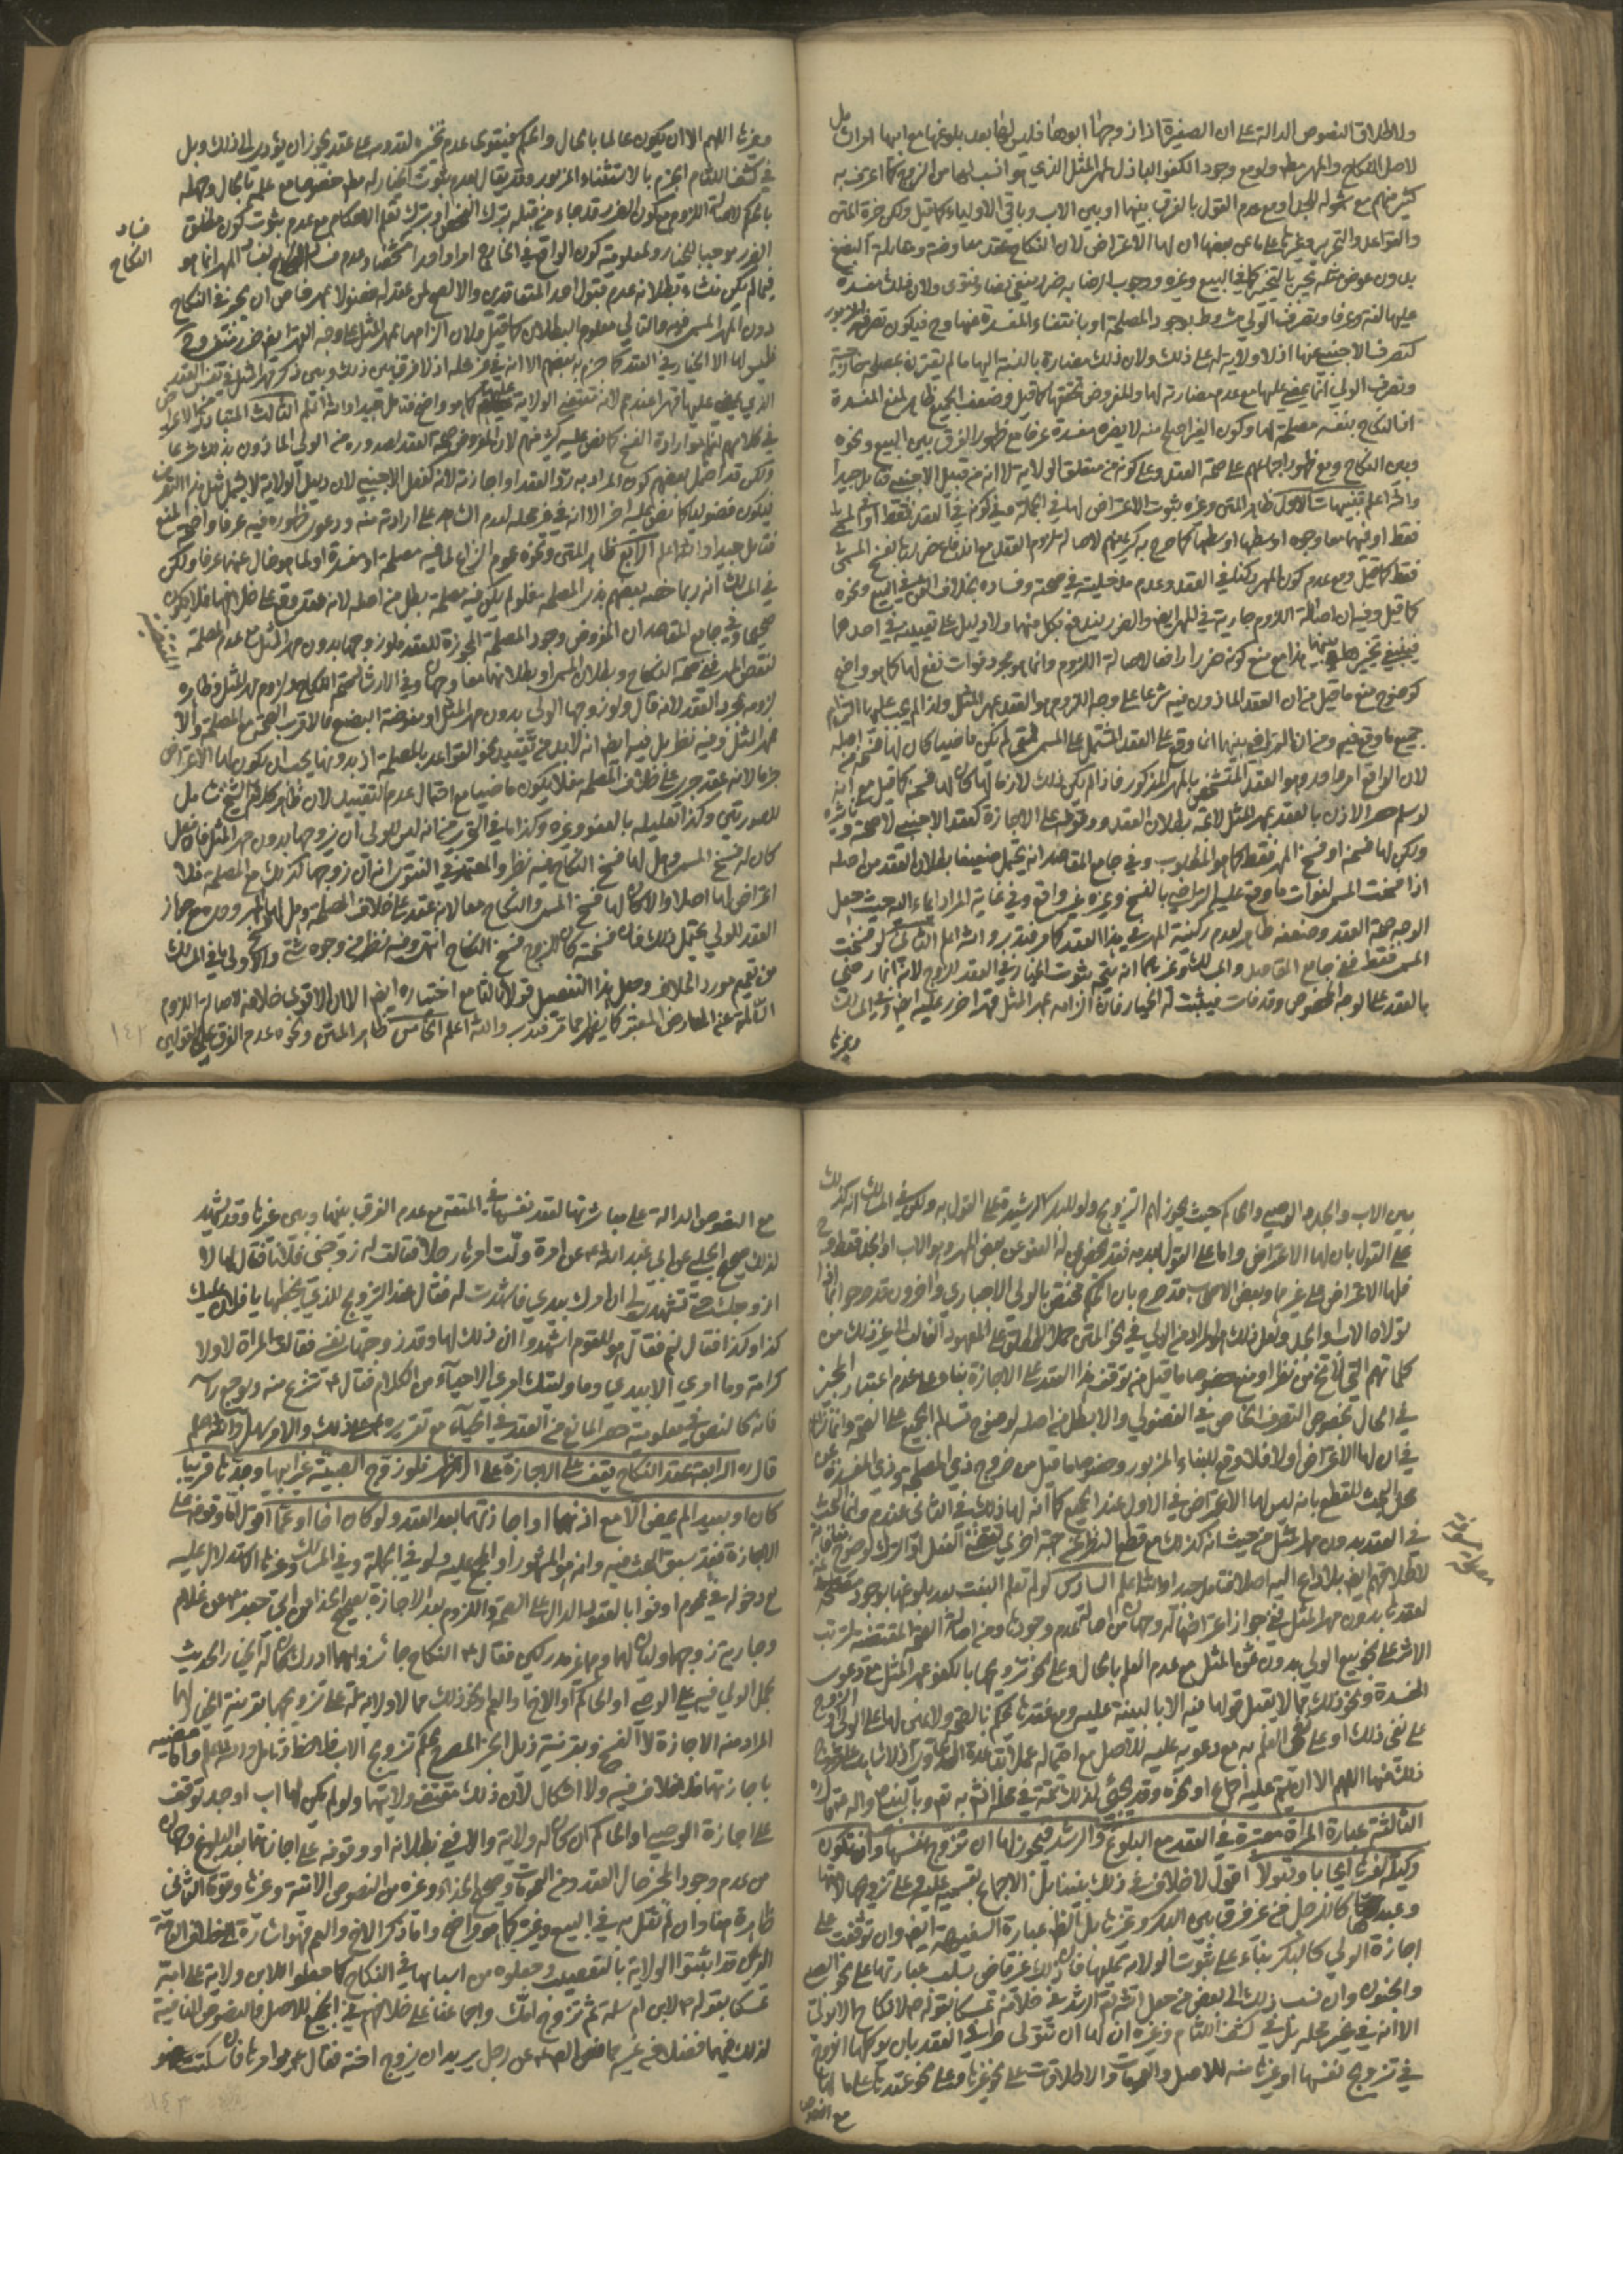 ولاطلاق النصوص الدالة على ان الصغيرة اذا زوجها ابوها فليس لها بعد بلوغها مع ابيها امر
لاصل النكاح والمهر ولو مع وجود الكفو الباذل لمهر المثل الذي هو انسب لها من الزوج كما اعترف به
كثير منهم مع شموله للجد او مع عدم القول بالفرق بينها او بين الاب وباقي الاولياء كما قيل ولكن خيرة المتن
والقواعد والتحرير وغيرها على ما عن بعضها ان لها الاعتراض لان النكاح عقد معاوضة ومقابلة البضع
بدون عوض مثله يجبر بالتخيير كما في البيع وغيره ووجوب الرضا به ضرر ينفى بنص وفتوى ولان ذلك مفسدة
عليها لغة وعرفا وتصرف الولي مشروط بوجود المصلحة او بانتفاء المفسدة فيكون تصرفه
كتصرف الاجنبي عنها اذ لا ولاية له على ذلك ولان ذلك مضارة بالنسبة اليها ما لم يقترن بمصلحة
وتصرف الولي انما يمضي عليها مع عدم مضارته لها والمفروض تحققها كما قيل وضعف الجميع ظاهر لمنع المفسدة
اذ النكاح بنفسه مصلحة لها وكون الغير اصلح منه لا يصيره مفسدة عرفا مع ظهور الفرق بين البيع ونحوه
وبين النكاح ومع ظهور اجماعهم على صحة العقد وعلى كونه من متعلق الولاية لا انه من قبيل الاجنبي فتأمل جيدا
والله اعلم تنبيهات الاول ظاهر المتن وغيره ثبوت الاعتراض لها في الجملة وفي كونه في العقد فقط او المسمى
فقط او فيهما معا وجوه اوسطها اوسطها كما صرح به كثير منهم لاصالة لزوم العقد مع اندفاع ضررها بفسخ المسمى
فقط كما قيل ومع عدم كون المهر ركنا في العقد وعدم مدخليته في صحته وفساده بخلاف الثمن في البيع ونحوه
كما قيل وفيه ان اصالة اللزوم جارية في المهر ايضا والضرر يندفع بكل منهما ولا دليل على تعيينه في احدهما
فينبغي تخييرها بينهما هذا مع منع كونه ضررا رافعا لاصالة اللزوم وانما هو مجرد فوات نفع لها كما هو واضح
كوضوح منع ما قيل من ان العقد الماذون فيه شرعا على وجه اللزوم هو العقد بمهر المثل ولذا لم يجب عليها التزام
جميع ما وقع فيه ومن ان التراضي بينهما انما وقع على العقد المشتمل على المسمى فمتى لم يكن ماضيا كان لها فسخه من اصله
لان الواقع امر واحد وهو العقد المتشخص بالمهر المذكور فاذا لم يكن ذلك لازما لها كان لها فسخه كما قيل مع انه
لو سلم حصر الاذن بالعقد بمهر المثل لاتجه بطلان العقد ووقوفه على الاجازة كعقد الاجنبي لا صحته
ولكن لها فسخه او فسخ المهر فقط كما هو المطلوب وفي جامع المقاصد انه يحتمل ضعيفا بطلان العقد من اصله
اذا فسخت المسمى لفوات ما وقع عليه التراضي بالفسخ وغيره غير واقع وفي غاية المراد ايماء اليه حيث جعل
الوجه صحة العقد وضعفه ظاهر لعدم ركنية المهر في هذا العقد كما مر فتدبر والله اعلم الثاني لو فسخت
المسمى فقط ففي جامع المقاصد والمسالك وغيرهما انه يتجه ثبوت الخيار في العقد للزوج لانه انما رضي
بالعقد على الوجه المخصوص وقد فات فيثبت له الخيار فان الزامه بمهر المثل قهرا ضرر عليه ايضا وفي المسالك
وغيرها
وغيرها اللهم الا ان يكون عالما بالحال والحكم فيتقوى عدم تخييره لقدومه على عقد يجوز ان يؤدي الى ذلك وبل
في كشف اللثام الجزم بالاستثناء المزبور وقد يقال بعدم ثبوت الخيار له مطلقا خصوصا مع علمه بالحال وجهله
بالحكم لاصالة اللزوم مع كون الضرر قد جاء من قبله بترك الفحص او بترك تعلم الاحكام مع عدم ثبوت كون مطلق
الضرر موجبا للخيار ولمعلومية كون الواقع في الخارج امرا واحدا شخصا وعدم فساد النكاح بفساد المهر انما هو
فساد
النكاح
فيما لم يكن منشاء بطلانه عدم قبول احد المتعاقدين والا لصح لمن عقد له فضولا بمهر خاص ان يجيز في النكاح
دون المهر المسمى فيه والتالي معلوم البطلان كما قيل ولان الزامها بمهر المثل على وجه القهر ايضا ضرر منفي وح
فليس لها الا الخيار في العقد كما جزم به بعضهم الا انه في غير محله اذ لا فرق بين ذلك وبين ذكر مهر المثل في نفس العقد
الذي يمضي عليها قهرا عندهم لانه مقتضى الولاية عليها كما هو واضح فتأمل جيدا والله اعلم الثالث المتبادر من الاعتراض
في كلامهم انما هو ارادة الفسخ كما نص عليه كثير منهم لان المفروض صحة العقد لصدوره من الولي الماذون بذلك شرعا
ولكن قد احتمل بعضهم كون المراد به رد العقد او اجازته لانه كفعل الاجنبي لان دليل الولاية لا يشمل مثل هذا التصرف
فيكون فضوليا كما نص عليه اخر الا انه في غير محله لعدم الشاهد على ارادته منه ودعوى ظهوره فيه عرفا واضحة المنع
فتأمل جيدا والله اعلم الرابع ظاهر المتن ونحوه عموم النزاع لما فيه مصلحة او مفسدة او لما هو خال عنهما عرفا ولكن
في المسالك انه ربما خصه بعضهم بذي المصلحة فلو لم يكن فيه مصلحة بطل من اصله لانه عقد وقع على خلافها فلا يكون
صحيحا وفي جامع المقاصد ان المفروض وجود المصلحة المجوزة للعقد فلو زوجها بدون مهر المثل مع عدم مصلحة
لنقص المهر ففي صحة النكاح وبطلان المسمى او بطلانهما معا وجهان وفي الارشاد صحة النكاح ولزوم مهر المثل وظاهره
لزومه بمجرد العقد لانه قال ولو زوجها الولي بدون مهر المثل او مفوضة البضع فالاقرب الصحة مع المصلحة والا
مهر المثل وفيه نظر بل فيه ايضا انه لابد من تقييد نحو القواعد بالمصلحة اذ بدونها يحتمل ان يكون لها الاعتراض
جزما لانه عقد جرى على خلاف المصلحة فلا يكون ماضيا مع احتمال عدم التقييد لان ظاهر كلام الشيخ شامل
للصورتين وكذا تعليله بالعفو وغيره وكذا ما في التحرير من انه ليس للولي ان يزوجها بدون مهر المثل فان فعل
كان لها فسخ المسمى وهل لها فسخ النكاح فيه نظر والمعتمد في الفتوى انه ان زوجها كذلك مع المصلحة فلا
اعتراض لها اصلا والا كان لها فسخ المسمى والنكاح معا لانه عقد على خلاف المصلحة وهل لها فسخ المهر وحده مع جواز
العقد للولي يحتمل ذلك فان فسخته كان للزوج فسخ النكاح انتهى وفيه نظر من وجوه شتى والاولى ما في المسالك
من تعميم مورد الخلاف وجعل هذا التفصيل قولا ثالثا مع اختياره ايضا الا ان الاقوى خلافه لاصالة اللزوم
السالمة عن المعارض المعتبر كما يظهر مما مر فتدبر والله اعلم الخامس ظاهر المتن ونحوه عدم الفرق على القولين
١٤٢
بين الاب والجد والوصي والحاكم حيث يجوز لهم التزويج ولو للبكر الرشيدة على القول به ولكن في المسالك انه كذلك
على القول بان لها الاعتراض واما على القول بعدمه فقد يختص بمن له العفو عن بعض المهر وهو الاب او الجد فقط وح
فلها الاعتراض على غيرهما وبعض الاصحاب قد صرح بان الحكم مختص بالولي الاجباري واخرون قد صرحوا بما اذا
تولاه الاب او الجد ولعل ذلك هو المراد من الولي في نحو المتن حملا للمطلق على المعهود الغالب الى غير ذلك من
كلماتهم التي لا تخ من نظر او منع خصوصا ما قيل من توقف هذا العقد على الاجازة بناء على عدم اعتبار المجيز
في الحال بخصوص التصرف الخاص في الفضولي والا بطل من اصله لوضوح تسالم الجميع على الصحة وانما النزاع
في ان لها الاعتراض او لا فلا وقع للبناء المزبور وخصوصا ما قيل من خروج ذي المصلحة وذي المفسدة عن
محل البحث للقطع بانه ليس لها الاعتراض في الاول عند الجميع كما انه لها ذلك في الثاني عندهم وانما البحث
في العقد بدون مهر المثل من حيث انه كذلك مع قطع النظر عن جهة اخرى تقتضي الفعل او الترك لوضوح منافاته
لاطلاقهم ايضا بلا داع اليه اصلا فتأمل جيدا والله اعلم السادس لو لم تعلم البنت بعد بلوغها بوجود مصلحة
لعقدها بدون مهر المثل ففي جواز اعتراضها له وجهان من اصالة عدم وجودها ومن اصالة الصحة المقتضية لترتب
الاثر على نحو بيع الولي بدون ثمن المثل مع عدم العلم بالحال وعلى نحو تزويجها بالكفو بمهر المثل مع دعوى
المفسدة ونحو ذلك مما لا يقبل قولها فيه الا بالبينة عليه ومع فقدها يحكم بالصحة ولا يمين لها على الولي او الزوج
على نفي ذلك او على نفي العلم به مع دعويه عليه
ذلك فيها اللهم الا ان يتم عليه اجماع او نحوه وقد يجيئ لذلك تتمة في محله انش به تع وبالنبي واله قال ره
الثالثة عبارة المراة معتبرة في العقد مع البلوغ والرشد فيجوز لها ان تزوج نفسها وان تكون
وكيلة لغيرها ايجابا وقبولا اقول لا خلاف في ذلك بيننا بل الاجماع بقسميه عليه وعلى تزويجها لامتها
وعبدها كالرجل من غير فرق بين البكر وغيرها بل الظاهر عبارة السفيهة ايضا وان توقفت على
اجازة الولي كالبكر بناء على ثبوت الولاية عليها فان ذلك غير قاض بسلب عبارتها على نحو الصبي
والمجنون وان نسب ذلك الى بعض من جعل الرشد في خلافه تمسكا بقوله ص لا نكاح الا بولي
الا انه في غير محله بل في كشف اللثام وغيره ان لها ان تتولى طرفي العقد بان يوكلها الزوج
في تزويج نفسها او غيرها منه للاصل والعمومات والاطلاقات على نحو غيرها وعلى نحو عقدها على مالها
مع النصوص
مع النصوص الدالة على مباشرتها لعقد نفسها في المتعة مع عدم الفرق بينها وبين غيرها وقد يشهد
لذلك صحيح الحلبي عن ابي عبد الله ع عن امرة ولت امرها رجلا فقالت له زوجني فلانا فقال لها لا
ازوجك حتى تشهدي لي ان امرك بيدي فاشهدت له فقال عند التزويج للذي يخطبها يا فلان عليك
كذا وكذا فقال نعم فقال هو للقوم اشهدوا ان ذلك لها وقد زوجتها نفسي فقالت المراة لا ولا
كرامة وما امري الا بيدي وما وليتك امري الا حياء من الكلام فقال ع تنزع منه ويوجع راسه
فانه كالنص في معلومية حصر المانع من العقد في الحياء مع تقريره ع على ذلك والامر سهل والله اعلم
قال ره الرابعة عقد النكاح يقف على الاجازة على الاظهر فلو زوج الصبية غير ابيها وجدها قريبا
كان او بعيدا لم يمض الا مع اذنها او اجازتها بعد العقد ولو كان اخا او عما اقول اما وقوفه على
الاجازة فقد سبق البحث فيه وانه هو المشهور او المجمع عليه ولو في الجملة وفي المسالك وغيرها الاستدلال عليه
مع دخوله في عموم اوفوا بالعقود الدال على الصحة واللزوم بعد الاجازة بصحيح الحذاء عن ابي جعفر ع عن غلام
وجارية زوجهما وليان لهما وهما غير مدركين فقال ع النكاح جائز وايهما ادرك كان له الخيار الحديث
بحمل الولي فيه على الوصي او الحاكم او الاخ او العم او نحو ذلك ممن لا ولاية له على تزويجهما بقرينة الخيار لهما
المراد منه الاجازة لا الفسخ وبقرينة ذيل الخبر المصرح بحكم تزويج الاب فلاحظ وتأمل والله اعلم واما مضيه
باجازتهما فلا خلاف فيه ولا اشكال لان ذلك مقتضى ولايتهما ولو لم يكن لها اب او جد توقف
على اجازة الوصي او الحاكم ان كان له ولاية والا ففي بطلانه او وقوفه على اجازتها بعد البلوغ وجهان
من عدم وجود المجيز حال العقد ومن العمومات وصحيح الحذاء وغيره من النصوص الاتية وغيرها وقوة الثاني
ظاهرة هنا وان لم نقل به في البيع وغيره كما هو واضح واما ذكر الاخ والعم فهو اشارة لخلاف العامة
الذين قد اثبتوا الولاية بالتعصيب وجعلوه من اسبابها في النكاح كما جعلوا للابن ولاية على امه
تمسكا بقوله ص لابن ام سلمة قم تزوج امك واجماعنا على خلافهم في الجميع للاصل والنصوص النافية
لذلك فيهما فضلا عن غيرهما فعن الص ع عن رجل يريد ان يزوج اخته فقال ع يؤامرها فان سكتت فهو
١٤٣